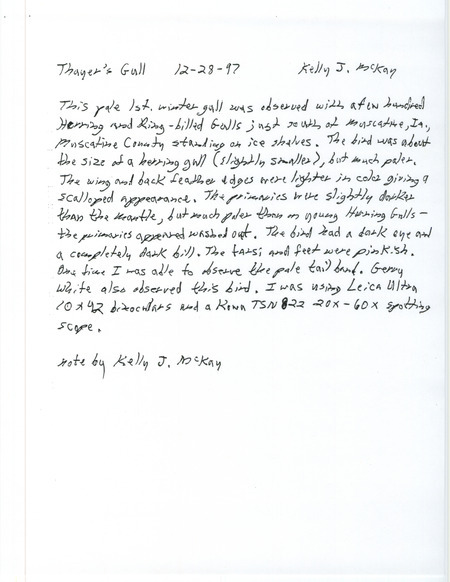 Thayer's Gull 12-28-97 Kelly J. McKay
This pale 1st. winter gull was observed with a few hundred
Herring and Ring-billed Gulls just south of Muscatine, Ia.,
Muscatine County standing on ice shelves. The bird was about
the size of a herring gull (slightly smaller), but much paler.
The wing and back feather edges were lighter in color giving a
scalloped appearance. The primaries were slightly darker
than the mantle, but much paler than on young Herring Gulls -
the primaries appeared washed out. The bird had a dark eye and
a completely dark bill. The tarsi and feet were pinkish.
One time I was able to observe the pale tail band. Gerry
White also observed this bird. I was using Leica Ultra
10x42 binoculars and a Kowa TSN 822 20x-60x spotting
scope.
note by Kelly J. McKay